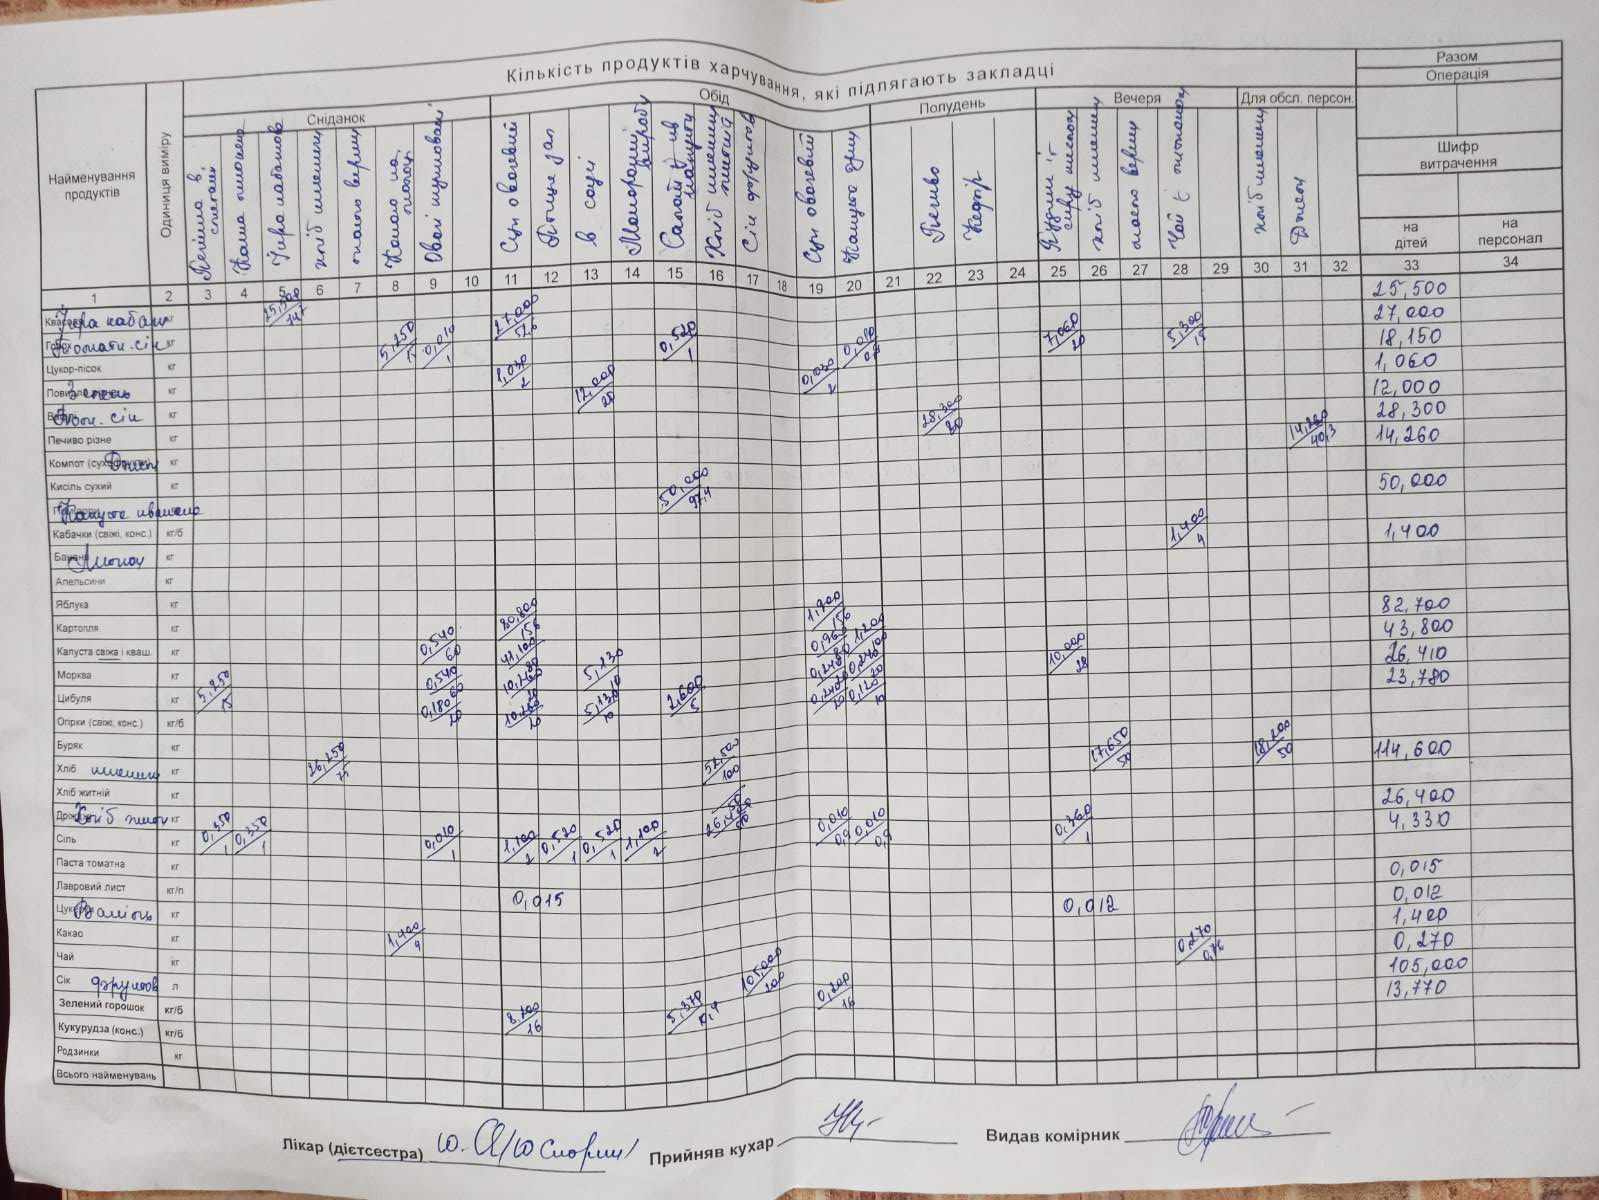 Кількість продуктів харчування, які підлягають закладці
Разом
Операція
Шифр витрачення
на дітей
на персонал
Найменування продуктів
Одиниця виміру
Сніданок
Обід
Полудень
Вечеря
Для обсл. персон.
Печінка в сметані
Каша пшенична
Ікра кабачкова
хліб пшенич
масло верш
Какао на молоці
Овочі
Суп овочевий
Птиця зап
в соусі
Макаронні вироби
Салат із капусти
Хліб пшенич житній
Сік фруктов
Суп овочевий
Капуста туш
Печиво
Кефір
Пудинг із сиру кислом
хліб пшенич
масло верш
Чай з лимоном
хліб пшенич
Джем
1 2 3 4 5 6 7 8 9 10 11 12 13 14 15 16 17 18 19 20 21 22 23 24 25 26 27 28 29 30 31 32 33 34
Ікра кабач кг 25,500
Томатн. сік кг 27,000 27,000
Цукор-пісок кг 5,250/15 0,010/1 0,520/1 0,010 7,060/20 5,300/15 18,150
кг 1,030/2 0,030/2 1,060
кг 12,000 12,000
Печиво різне кг 28,300 28,300
Компот Джем кг 14,260/40,3 14,260
Кисіль сухий кг
Капуста квашена 50,000/97,4 50,000
Кабачки (свіжі, конс.) кг/б
Лимон кг 1,400/4 1,400
Апельсини кг
Яблука кг
Картопля кг 80,800/156 1,900/156 82,700
Капуста свіжа і кваш. кг 0,540/60 41,100/80 0,960/80 1,200/100 43,800
Морква кг 0,540/60 10,260/20 5,130/10 0,240/20 0,240/20 10,000/28 26,410
Цибуля кг 5,250/15 0,180/20 10,260/20 5,130/10 2,600/5 0,240/20 0,120/10 23,780
Огірки (свіжі, конс.) кг/б
Буряк кг
Хліб пшенич кг 26,250/75 52,500/100 17,650/50 18,200/50 114,600
Хліб житній кг
Хліб житн кг 26,400/50 26,400
Сіль кг 0,350/1 0,350/1 0,010/1 1,100/2 0,520/1 0,520/1 1,100/2 0,010/0,9 0,010/0,9 0,360/1 4,330
Паста томатна кг
Лавровий лист кг/п 0,015 0,015
Ваніль кг 0,012 0,012
Какао кг 1,400/4 1,400
Чай кг 0,270/0,76 0,270
Сік фруктов л 105,000/200 105,000
Зелений горошок кг/б 8,200/16 5,370/10,4 0,200/16 13,770
Кукурудза (конс.) кг/б
Родзинки кг
Всього найменувань
Лікар (дієтсестра)
Прийняв кухар
Видав комірник